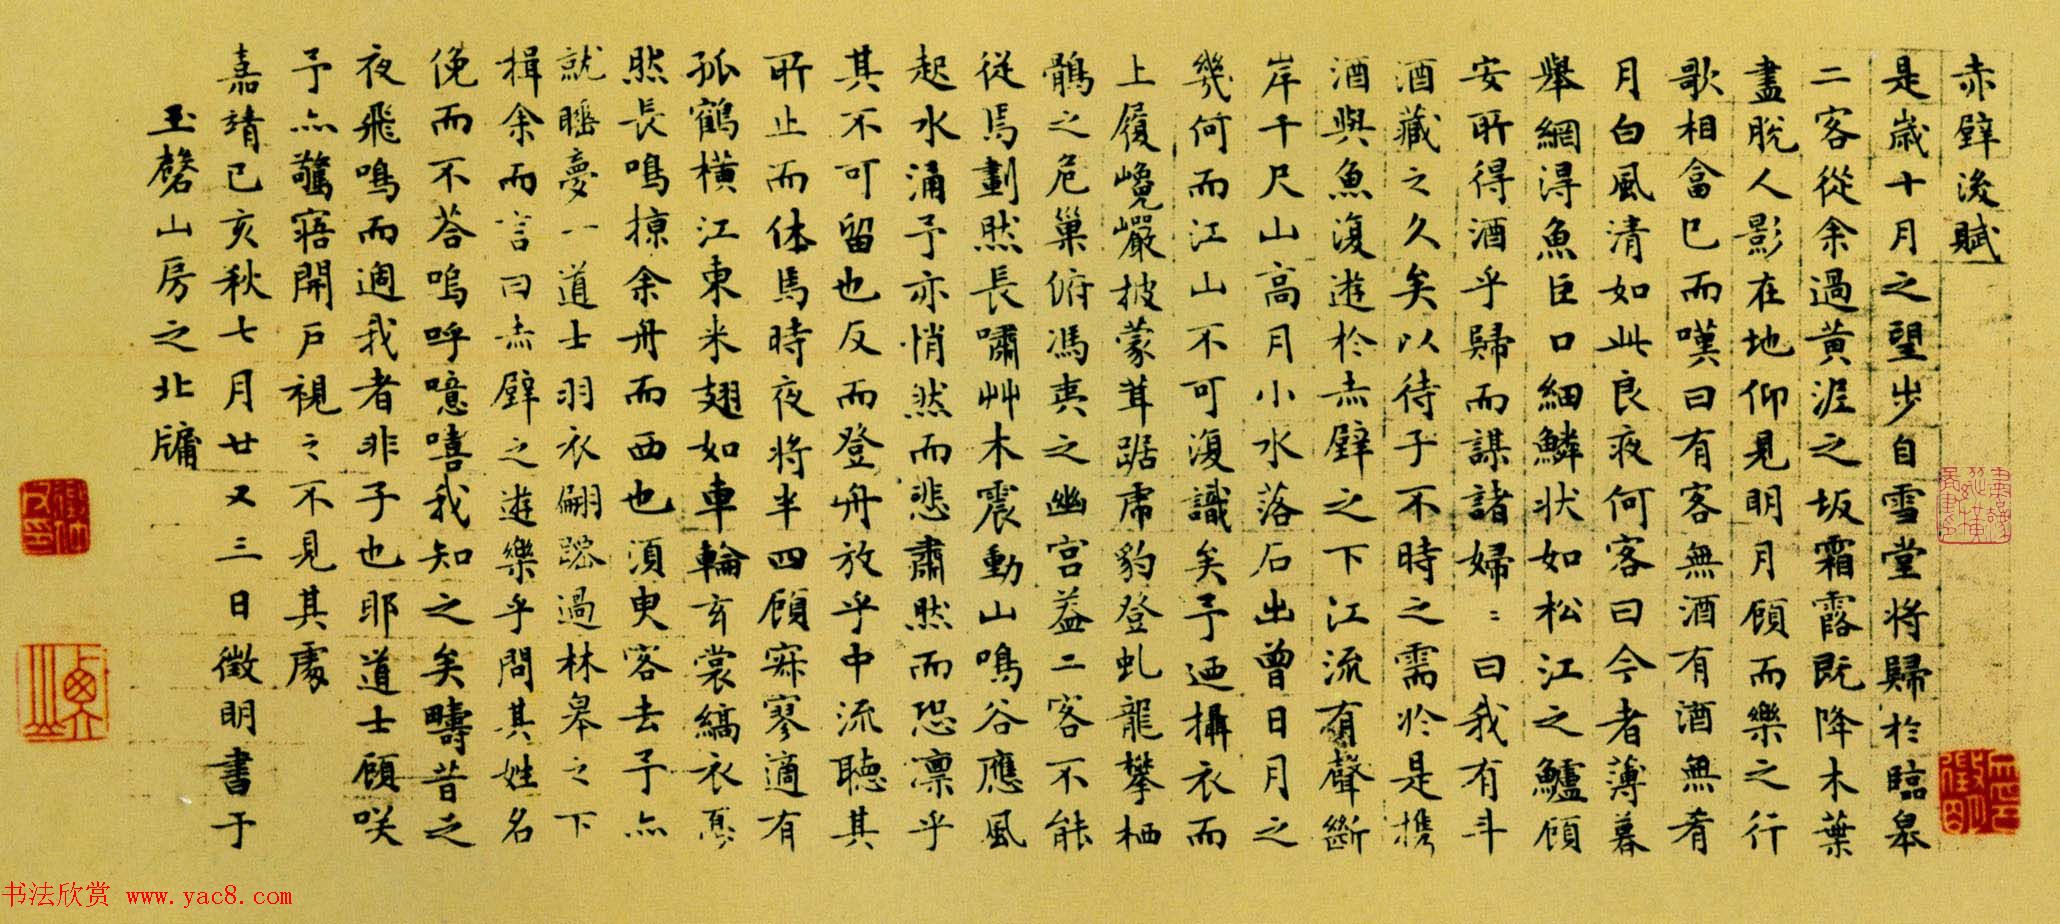 赤壁後賦
是歲十月之望步自雪堂將歸於臨皋
二客從余過黃泥之坂霜露既降木葉
盡脫人影在地仰見明月顧而樂之行
歌相畣已而嘆曰有客無酒有酒無肴
月白風清如此良夜何客曰今者薄暮
舉網得魚巨口細鱗狀如松江之鱸顧
安所得酒乎歸而謀諸婦〻曰我有斗
酒藏之久矣以待子不時之需於是携
酒與魚復遊於赤壁之下江流有聲斷
岸千尺山高月小水落石出曾日月之
幾何而江山不可復識矣予迺攝衣而
上履巉巖披蒙茸踞虎豹登虬龍攀栖
鶻之危巢俯馮夷之幽宮益二客不能
從焉劃然長嘯艸木震動山鳴谷應風
起水涌予亦悄然而悲肅然而恐凛乎
其不可留也反而登舟放乎中流聽其
所止而休焉時夜將半四顧寂寥適有
孤鶴橫江東來翅如車輪玄裳縞衣戛
然長鳴掠余舟而西也須臾客去予亦
就睡夢一道士羽衣翩躚過林皋之下
揖余而言曰赤壁之遊樂乎問其姓名
俛而不荅嗚呼噫嘻我知之矣疇昔之
夜飛鳴而過我者非子也耶道士顧笑
予亦驚寤開戶視之不見其處
嘉靖己亥秋七月廿又三日徵明書于
玉磬山房之北牖
书法欣赏 www.yac8.com